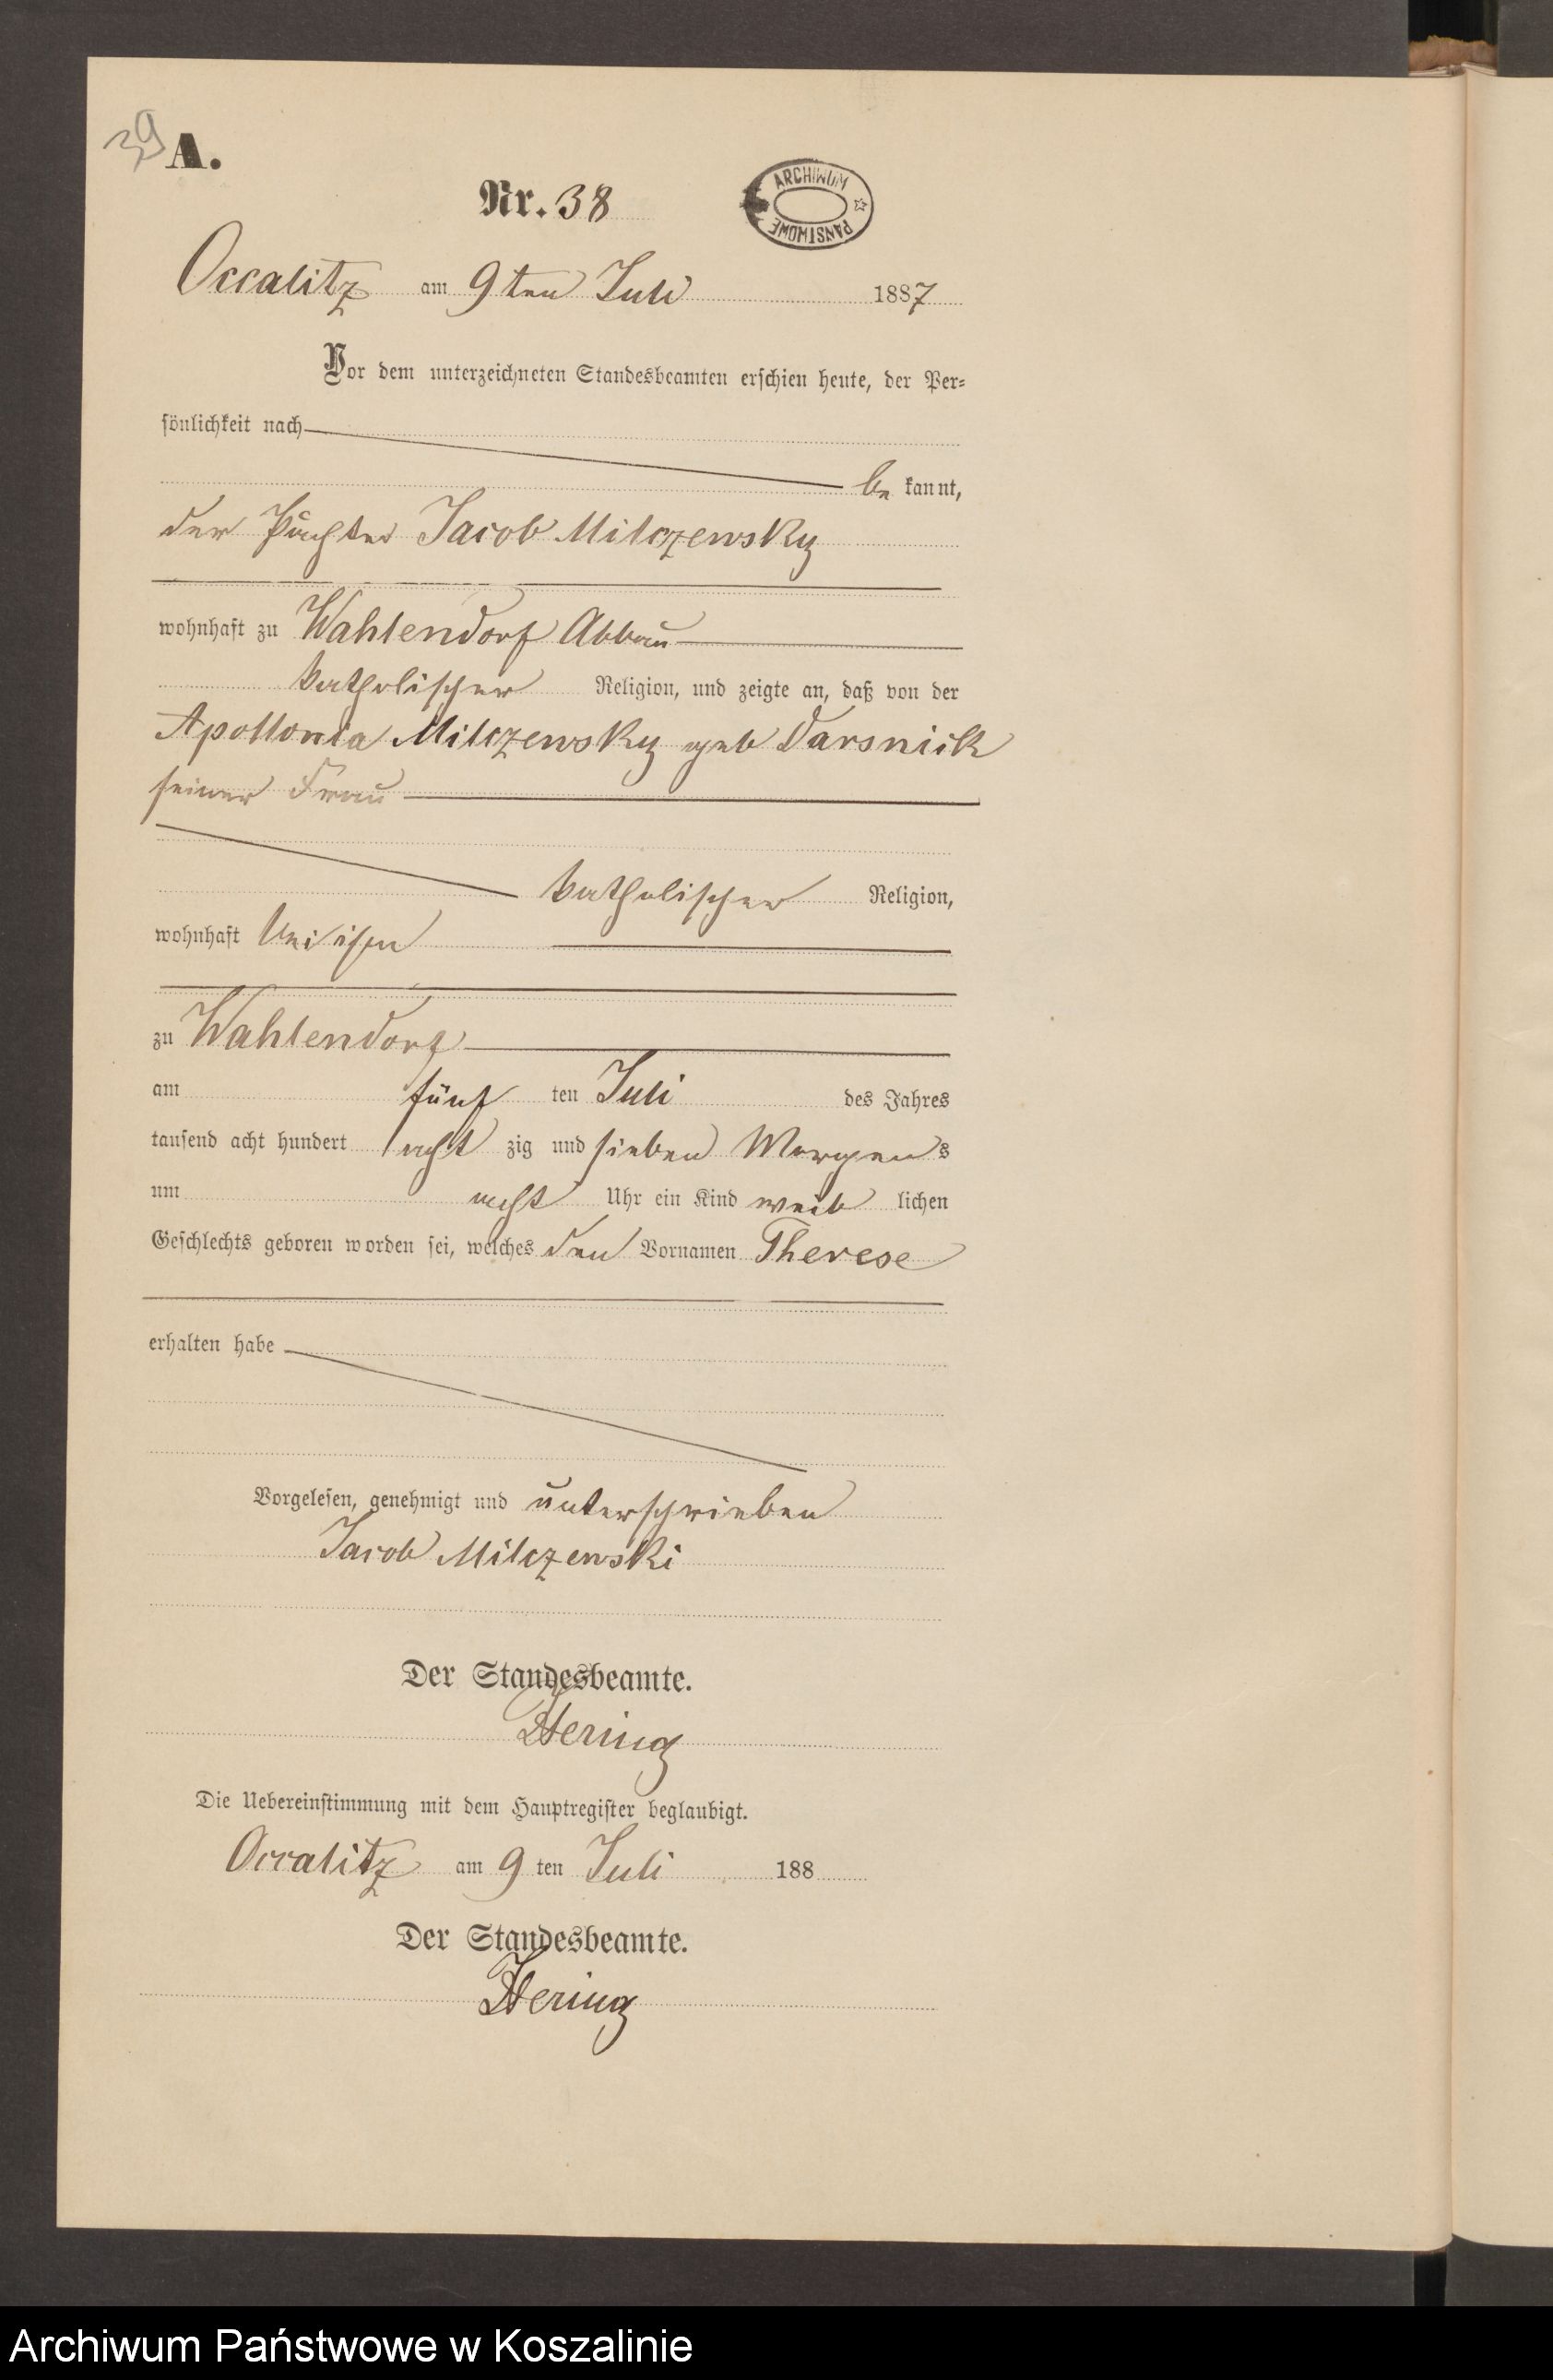 39
A.
Nr. 38
ARCHIWUM
PAŃSTWOWE
Occalitz am 9ten Juli 1887
Vor dem unterzeichneten Standesbeamten erschien heute, der Per-
sönlichkeit nach
be kannt,
der Pächter Jacob Milczewsky
wohnhaft zu Wahlendorf Abbau
katholischer Religion, und zeigte an, daß von der
Apollonia Milczewsky geb Darsnick
seiner Frau
katholischer Religion,
wohnhaft bei ihm
zu Wahlendorf
am fünf ten Juli des Jahres
tausend acht hundert acht zig und sieben Morgens
um acht Uhr ein Kind weib lichen
Geschlechts geboren worden sei, welches den Vornamen Therese
erhalten habe
Vorgelesen, genehmigt und unterschrieben
Jacob Milczewski
Der Standesbeamte.
Hering
Die Uebereinstimmung mit dem Hauptregister beglaubigt.
Occalitz am 9 ten Juli 188
Der Standesbeamte.
Hering
Archiwum Państwowe w Koszalinie